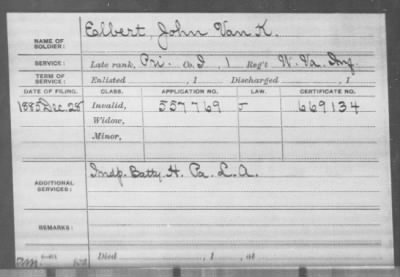 NAME OF SOLDIER: Elbert, John Van K.
SERVICE: Late rank, Pri. Co. I, 1 Reg't W. Va. Inf.
TERM OF SERVICE: Enlisted , 1 Discharged , 1
DATE OF FILING. CLASS. APPLICATION NO. LAW. CERTIFICATE NO.
1885 Dec. 28 Invalid, 557769 J 669134
Widow,
Minor,
ADDITIONAL SERVICES: Indp. Batty. H. Pa. L. A.
REMARKS:
Died , 1 , at